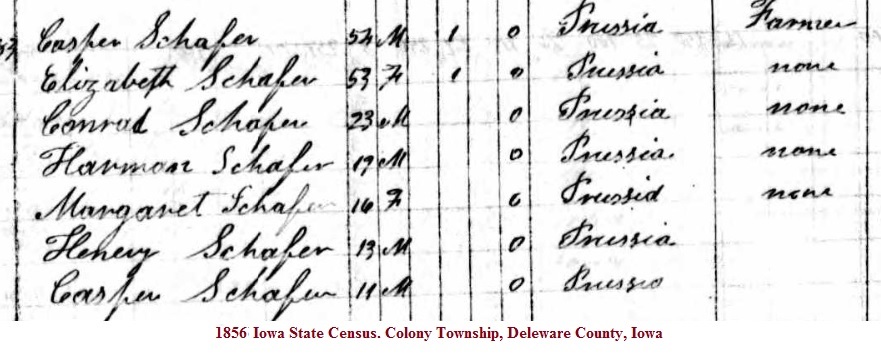 Casper Schafer 54 M 1 0 Prussia Farmer
Elizabeth Schafer 53 F 1 0 Prussia none
Conrad Schafer 23 M 0 Prussia none
Harmon Schafer 19 M 0 Prussia none
Margaret Schafer 16 F 0 Prussia none
Henery Schafer 13 M 0 Prussia
Casper Schafer 11 M 0 Prussia
1856 Iowa State Census. Colony Township, Deleware County, Iowa